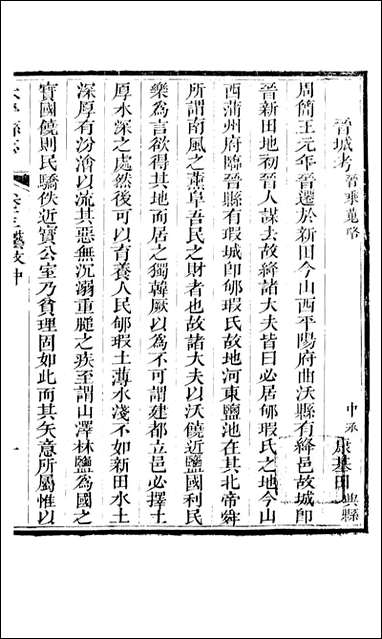 晉城考 晉乘蒐略 中丞 康基田 興縣
周簡王元年晉遷於新田今山西平陽府曲沃縣有絳邑故城卽
晉新田地初晉人謀去故絳諸大夫皆曰必居郇瑕氏之地今山
西蒲州府臨晉縣有瑕城卽郇瑕氏故地河東鹽池在其北帝舜
所謂南風之薰阜吾民之財者也故諸大夫以沃饒近鹽國利民
樂為言欲得其地而居之獨韓厥以為不可謂建都立邑必擇土
厚水深之處然後可以育養人民郇瑕土薄水淺不如新田水土
深厚有汾澮以流其惡無沉溺重膇之疾至謂山澤林鹽為國之
寶國饒則民驕佚近寶公室乃貧理固如此而其矣意所屬惟以
藝文中 一